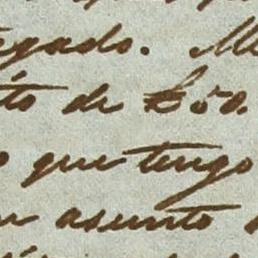 egado. Me
to de £50.
que tengo
asunto